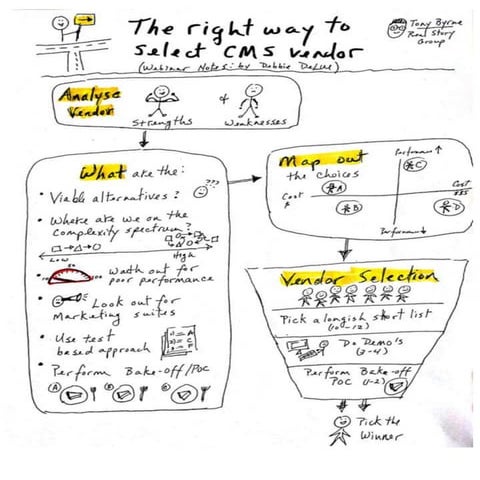 The right way to
select CMS vendor
(Webinar Notes: by Debbie DeLue)
Tony Byrne
Real Story
Group
Analyse
Vendor
Strengths
&
Weaknesses
What are the:
• Viable alternatives?
???
• Where are we on the
complexity spectrum?
Low
High
• Watch out for
poor performance
• Look out for
Marketing suites
• Use test
based approach
1 = A
2 = C
3 = F
• Perform Bake-off/POC
A
B
C
Map out
the choices
Performance ↑
Cost
$
Cost
$$$
A
B
C
D
Performance ↓
Vendor Selection
Pick a longish short list
(10-12)
Do Demo's
(3-4)
Perform Bake-off
POC (1-2)
Pick the
Winner